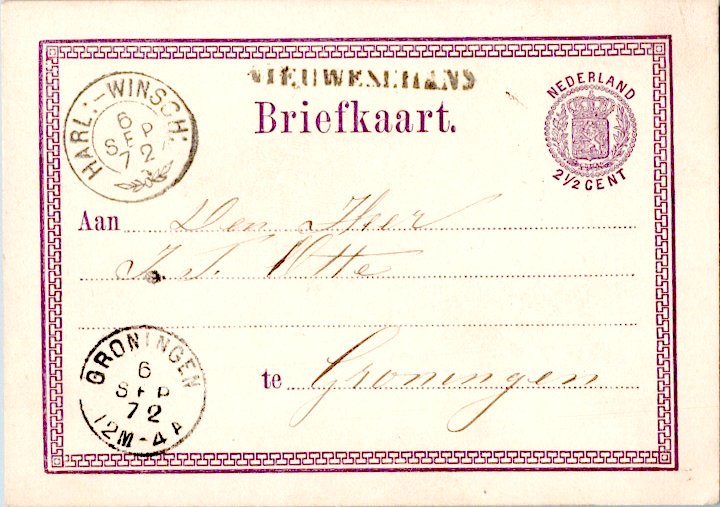 NIEUWESCHANS
NEDERLAND
2½ CENT
HARL:-WINSCH:
6
SEP
72
Briefkaart.
Aan Den Heer
Otte
te Groningen
GRONINGEN
6
SEP
72
12M-4